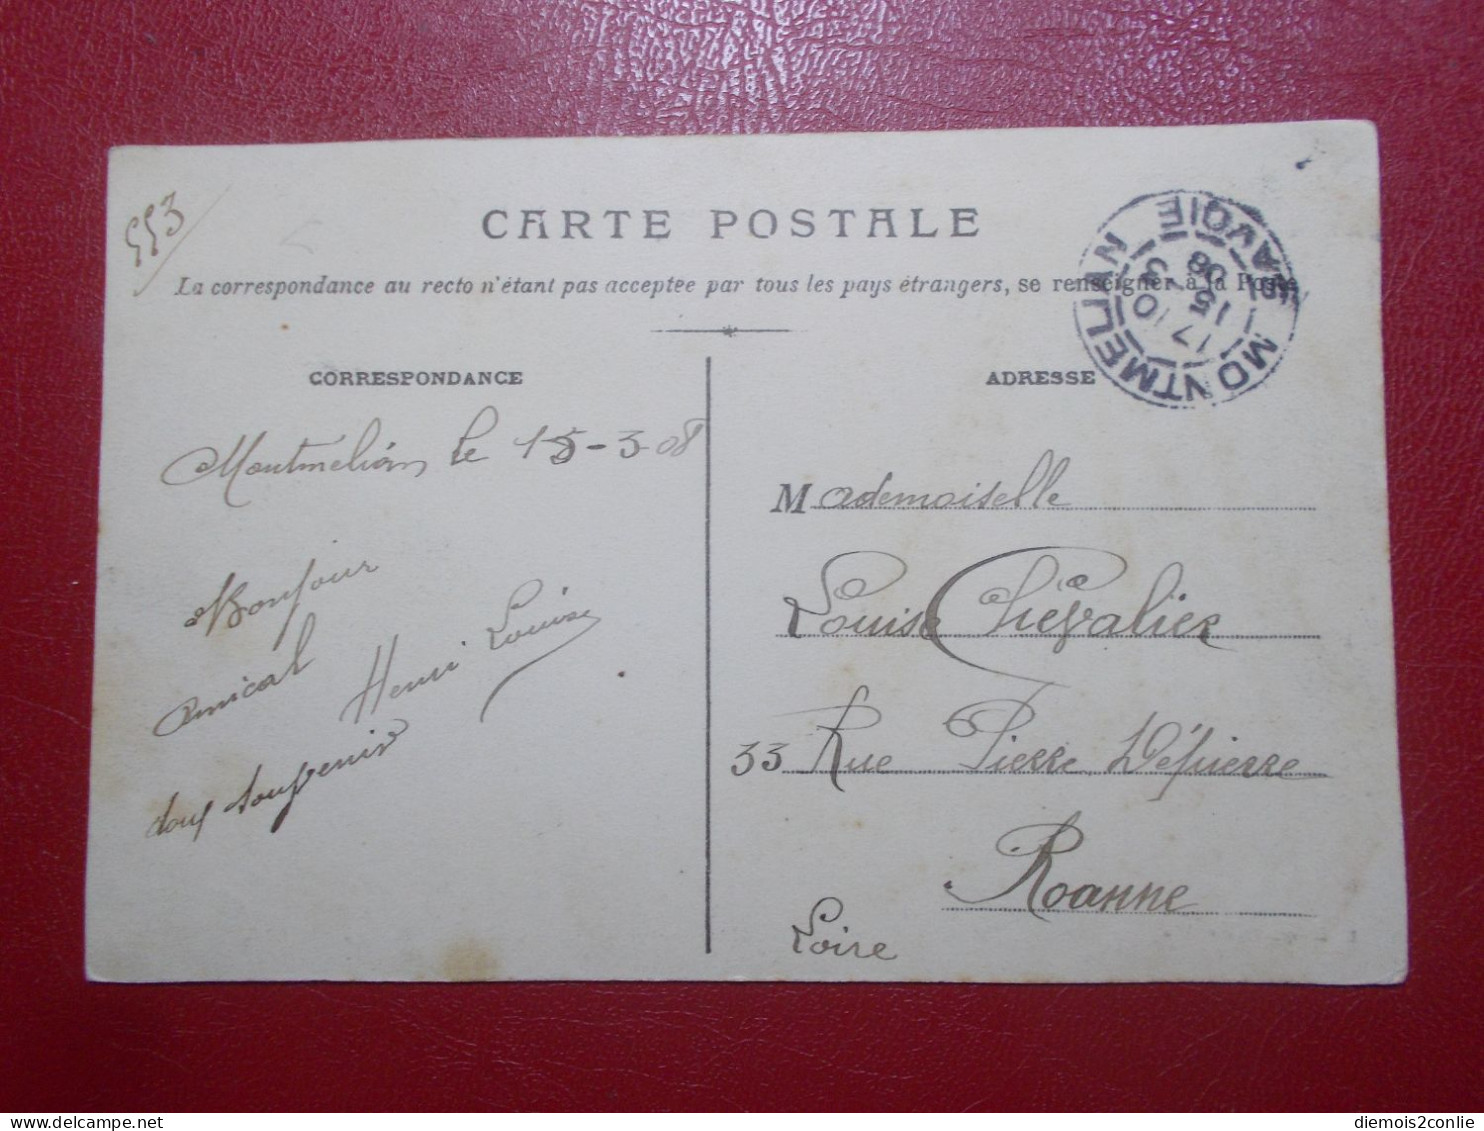 553
CARTE POSTALE
La correspondance au recto n'étant pas acceptée par tous les pays étrangers, se renseigner à la Poste
MONTMELIAN
SAVOIE
17 10
15
3
08
CORRESPONDANCE
ADRESSE
Montmelian le 15-3-08
Bonjour
amical
doux souvenir
Henri Louise
Mademoiselle
Louise Chevalier
33 Rue Pierre Dépierre
Roanne
Loire
diemois2conlie